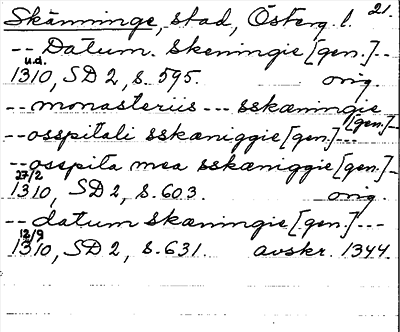 Skänninge, stad, Österg. l. 21.
-- Datum. Skeningie [gen.] --
u.d.
1310, SD 2, s. 595. orig.
-- monasteriis --- sskæningie [gen.] --
-- osspitali sskæniggie [gen.] --
-- osspita mea sskæniggie [gen.] --
27/2
1310, SD 2, s. 603. orig.
-- datum skæningie [gen.] ---
12/9
1310, SD 2, s. 631. avskr. 1344.